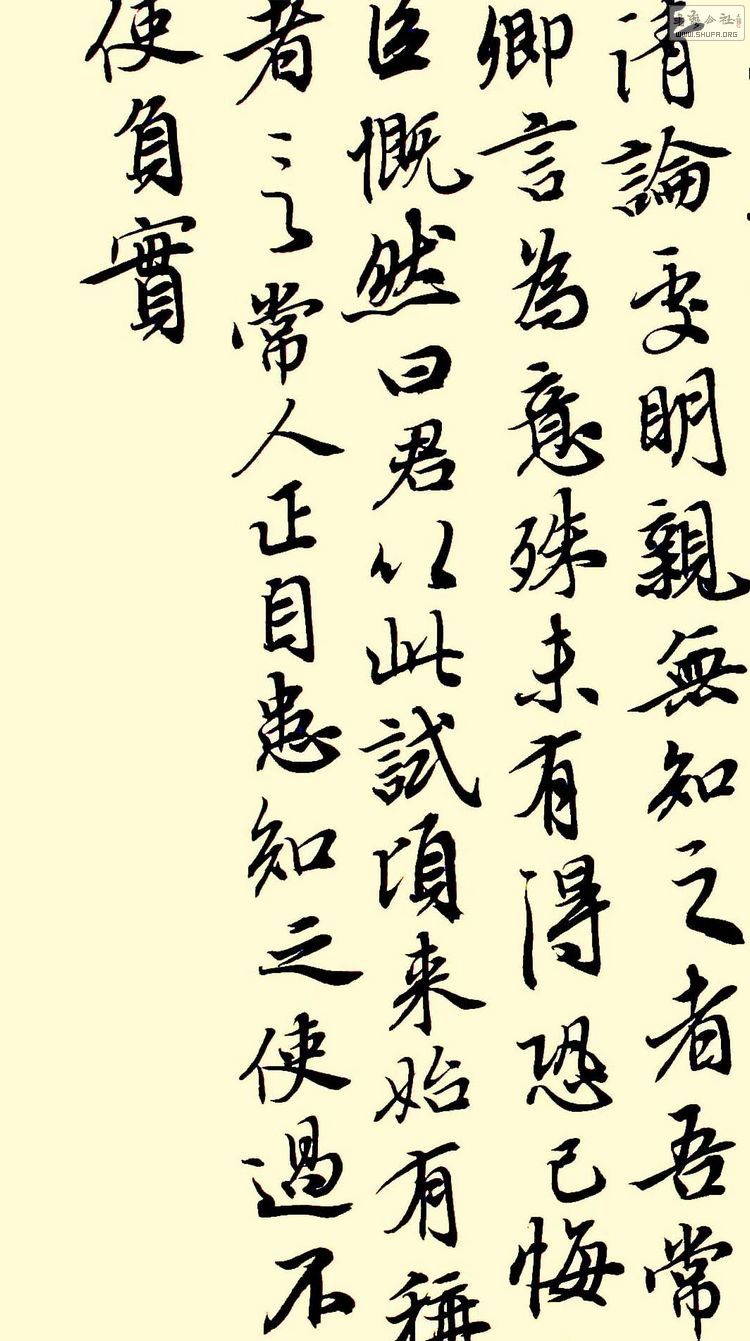 清論處明親無知之者吾常
卿言為意殊未有得恐已悔
臣慨然曰君以此試頃来始有稱
者言常人正自患知之使過不
使負實
WWW.SHUFA.ORG